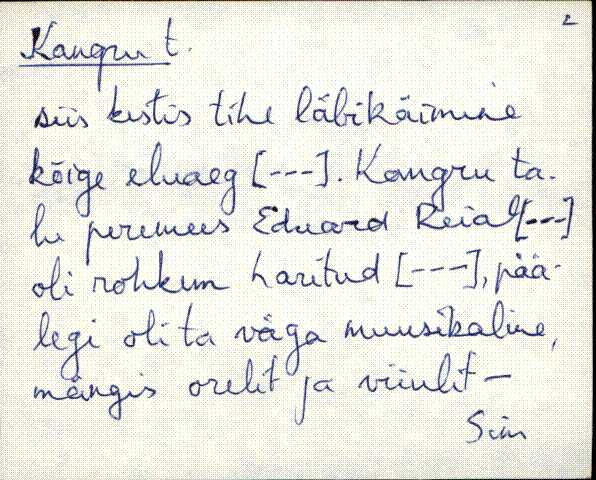 2
Kangru t.
siis kestis tihe läbikäimine
kõige eluaeg [---]. Kangru ta-
lu peremees Eduard Reial [---]
oli rohkem haritud [---], pää-
legi oli ta väga muusikaline,
mängis orelit ja viiulit —
Sim